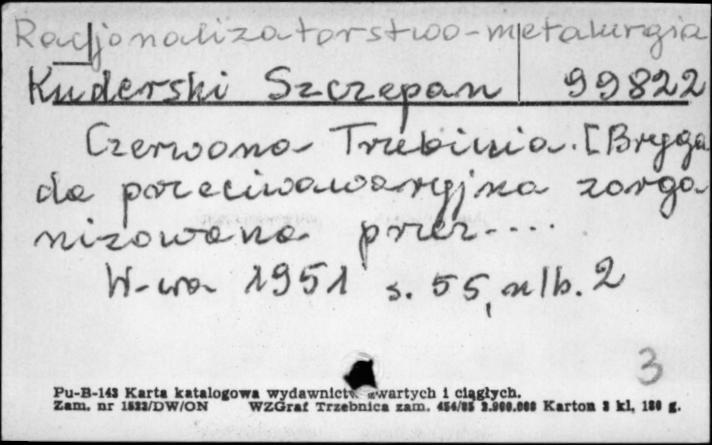 Racjonalizatorstwo-metalurgia
Kuderski Szczepan 99822
Czerwona Trzebinia. [Bryga
da przeciwawaryjna zorga
nizowana przez....
W-wa 1951 s. 55, nlb. 2
3
Pu-B-143 Karta katalogowa wydawnictw zwartych i ciągłych.
Zam. nr 1522/DW/ON WZGraf Trzebnica zam. 454/85 2.900.000 Karton 3 kl. 180 g.